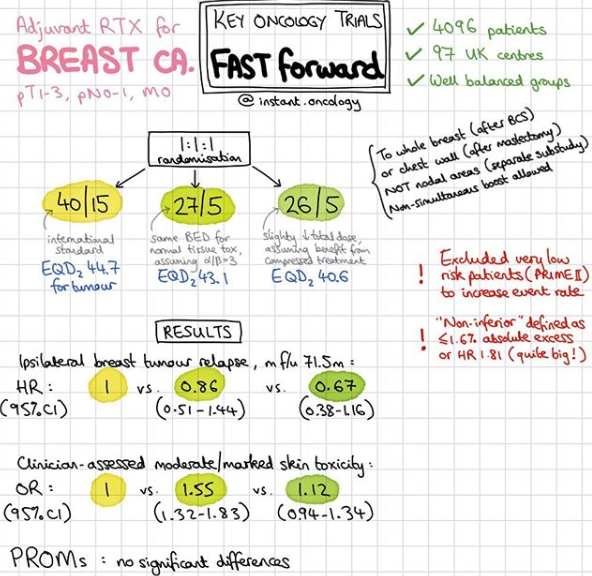 Adjuvant RTX for
BREAST CA.
pT1-3, pN0-1, M0
KEY ONCOLOGY TRIALS
FAST forward
@instant.oncology
✓ 4096 patients
✓ 97 UK centres
✓ Well balanced groups
1:1:1
randomisation
To whole breast (after BCS)
or chest wall (after mastectomy)
NOT nodal areas (separate substudy)
Non-simultaneous boost allowed
40/15
international
standard
EQD₂ 44.7
for tumour
27/5
same BED for
normal tissue tox,
assuming α/β=3
EQD₂ 43.1
26/5
slightly ↓ total dose,
assuming benefit from
compressed treatment
EQD₂ 40.6
! Excluded very low
risk patients (PRIME II)
to increase event rate
! "Non-inferior" defined as
≤1.6% absolute excess
or HR 1.81 (quite big!)
RESULTS
Ipsilateral breast tumour relapse, m f/u 71.5m:
HR: 1 vs. 0.86 vs. 0.67
(95% CI) (0.51-1.44) (0.38-1.16)
Clinician-assessed moderate/marked skin toxicity:
OR: 1 vs. 1.55 vs. 1.12
(95% CI) (1.32-1.83) (0.94-1.34)
PROMs: no significant differences